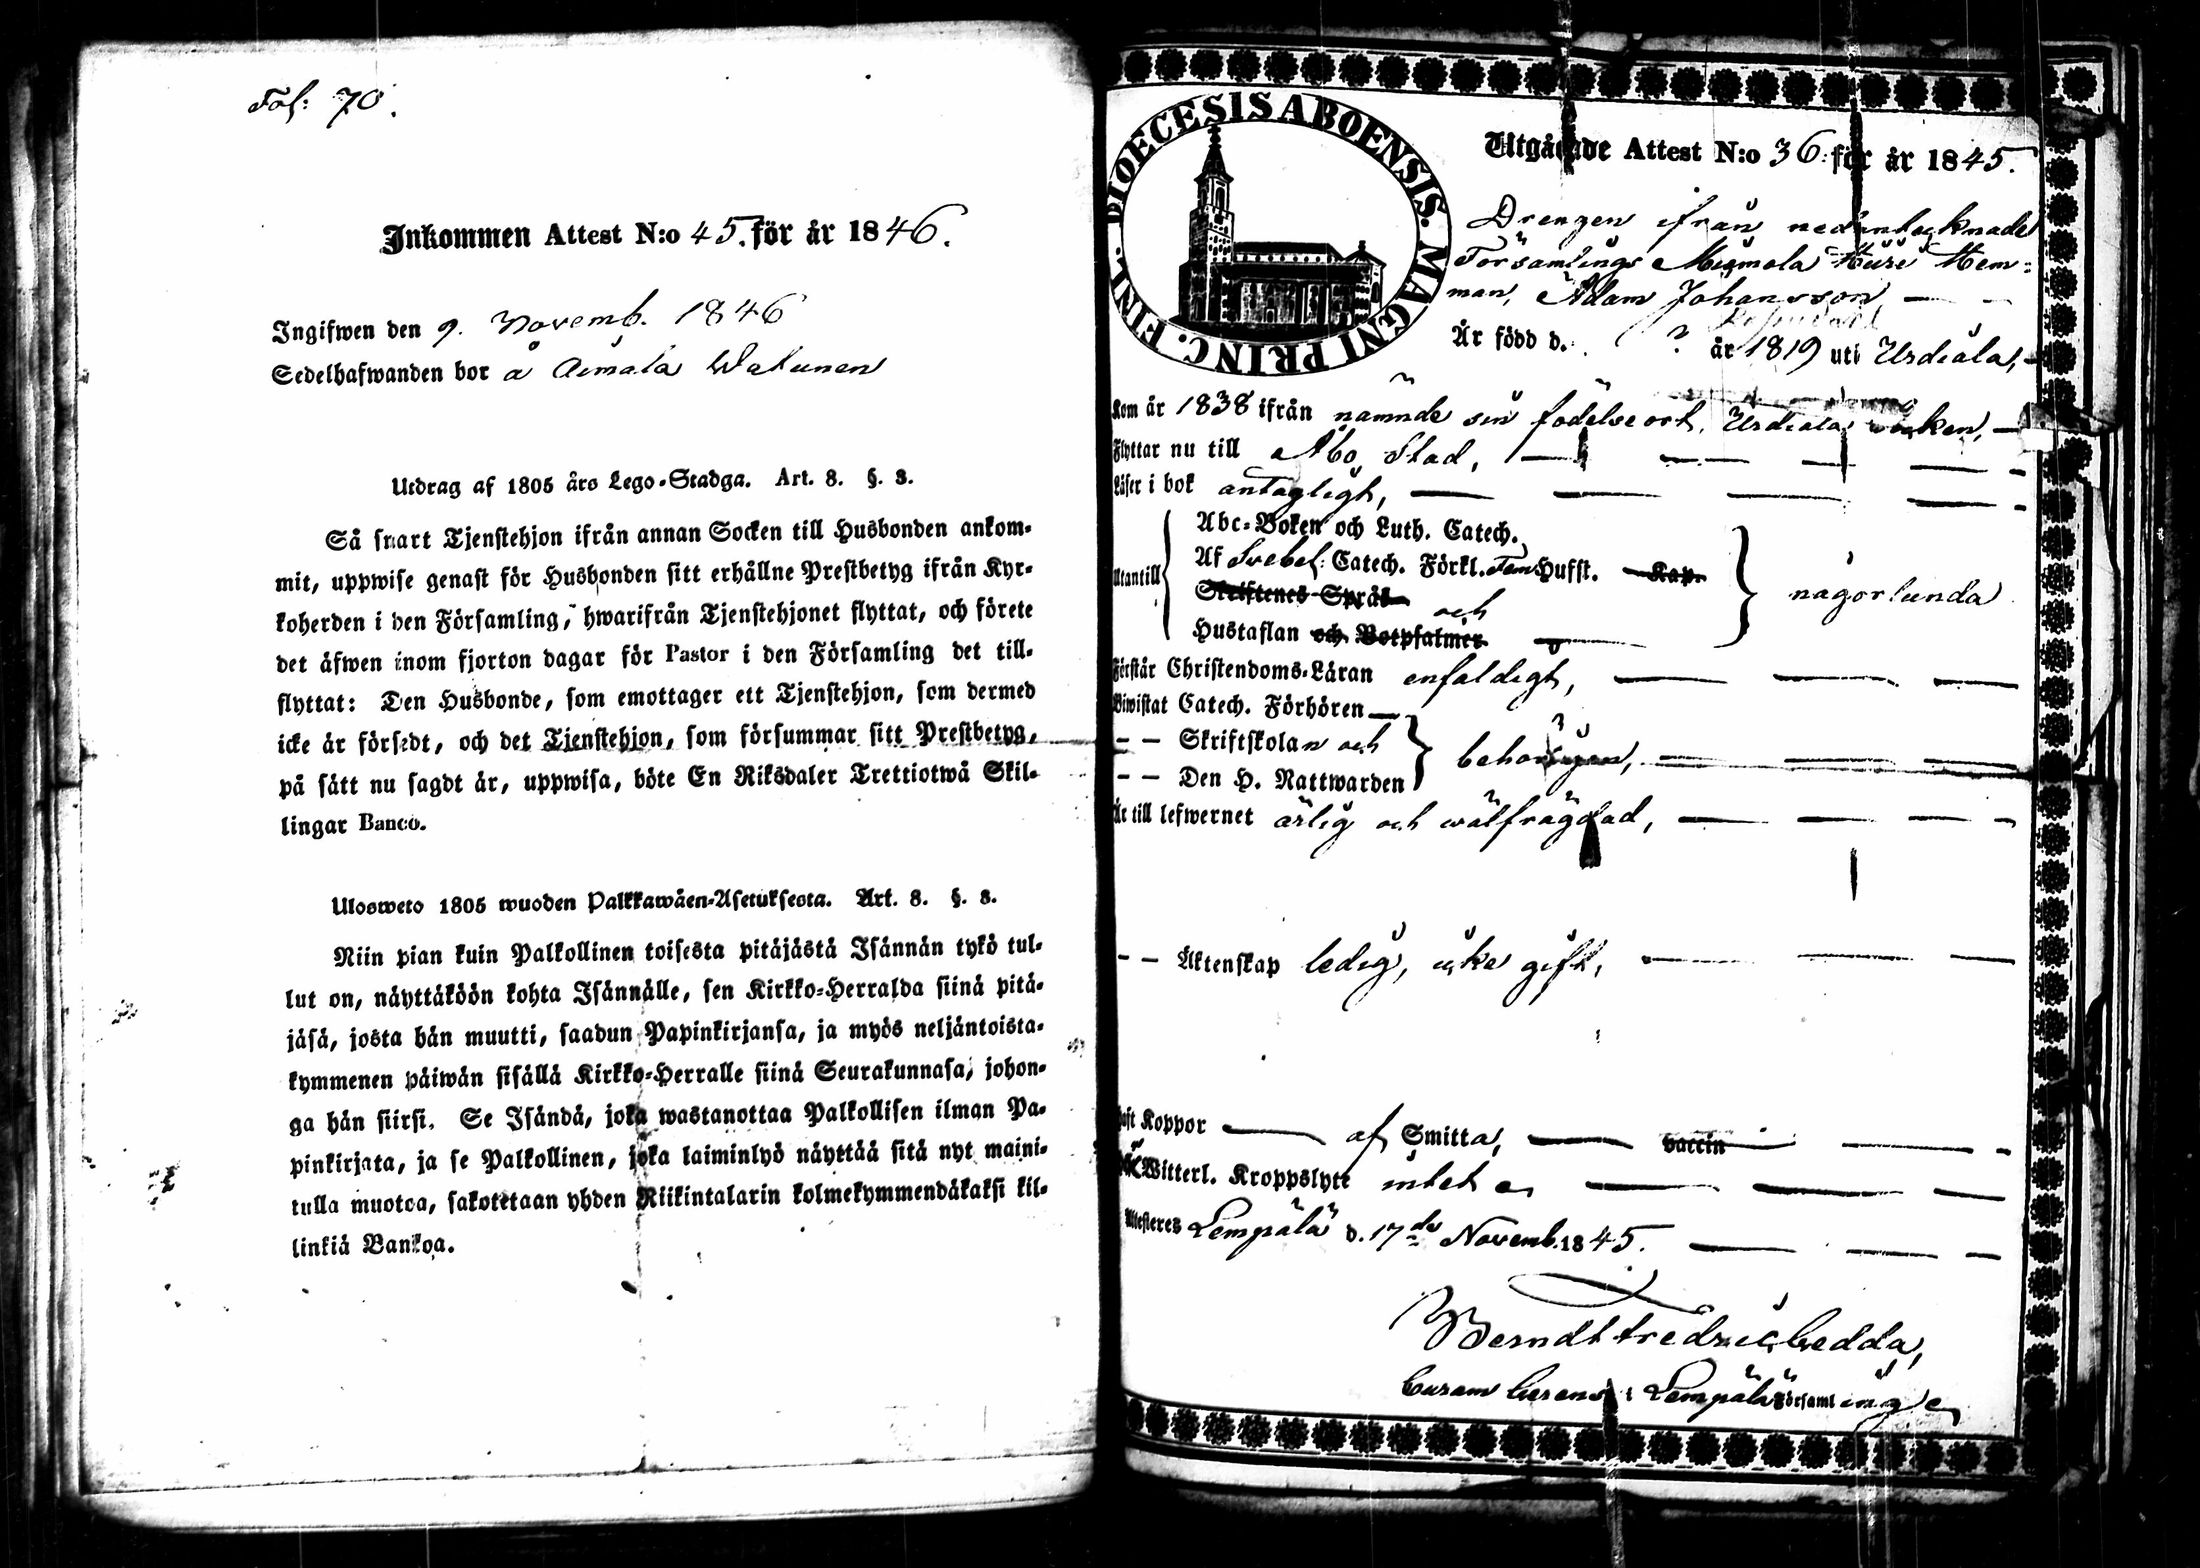 Fol: 70.
Inkommen Attest N:o 45. för år 1846.
Ingifwen den 9. Novemb. 1846
Sedelhafwanden bor å Aimala
Utdrag af 1805 års Lego-Stadga. Art. 8. §. 3.
Så snart Tjenstehjon ifrån annan Socken till Husbonden ankom-
mit, uppwise genast för Husbonden sitt erhållne Prestbetyg ifrån Kyr-
koherden i den Församling, hwarifrån Tjenstehjonet flyttat, och förete
det äfwen inom fjorton dagar för Pastor i den Församling det till-
flyttat: Den Husbonde, som emottager ett Tjenstehjon, som dermed
icke är försedt, och det Tjenstehjon, som försummar sitt Prestbetyg,
på sätt nu sagdt är, uppwisa, böte En Riksdaler Trettiotwå Skil-
lingar Banco.
Ulosweto 1805 wuoden Palkkawäen-Asetuksesta. Art. 8. §. 3.
Niin pian kuin Palkollinen toisesta pitäjästä Isännän tykö tul-
lut on, näyttäköön kohta Isännälle, sen Kirkko-Herralda siinä pitä-
jäsä, josta hän muutti, saadun Papinkirjansa, ja myös neljäntoista-
kymmenen päiwän sisällä Kirkko-Herralle siinä Seurakunnasa, johon-
ga hän siirsi. Se Isändä, joka wastanottaa Palkollisen ilman Pa-
pinkirjata, ja se Palkollinen, joka laiminlyö näyttää sitä nyt maini-
tulla muotoa, sakotetaan yhden Riikintalarin kolmekymmendäkaksi kil-
linkiä Bankoa.
DIOECESIS ABOENSIS. MAGNI PRINC. FINL.
Utgående Attest N:o 36. för år 1845.
Drengen ifrån nedantecknade
Församlings Hem-
man, Adam Johansson
Är född d. ? år 1819 uti Urdiala,
Kom år 1838 ifrån nämnde sin födelseort, Urdiala socken,
Flyttar nu till Åbo Stad,
Läser i bok antagligt,
Utantill
Abc-Boken och Luth. Catech.
Af Svebel: Catech. Förkl. Fem Hufst. Kap.
Skriftenes Språk och
Hustaflan och Botpsalmer
någorlunda
Förstår Christendoms-Läran enfaldigt,
Biwistat Catech. Förhören
– – Skriftskolan och
– – Den H. Nattwarden
behörigen,
Är till lefwernet ärlig och wälfrägdad,
– – Äktenskap ledig, icke gift,
Haft Koppor af Smitta, vaccin
Witterl. Kroppslyte intet
Attesteres Lempälä d. 17de Novemb. 1845.
Berndt Fredric Gedda,
Curam Gerens i Lempälä Församling